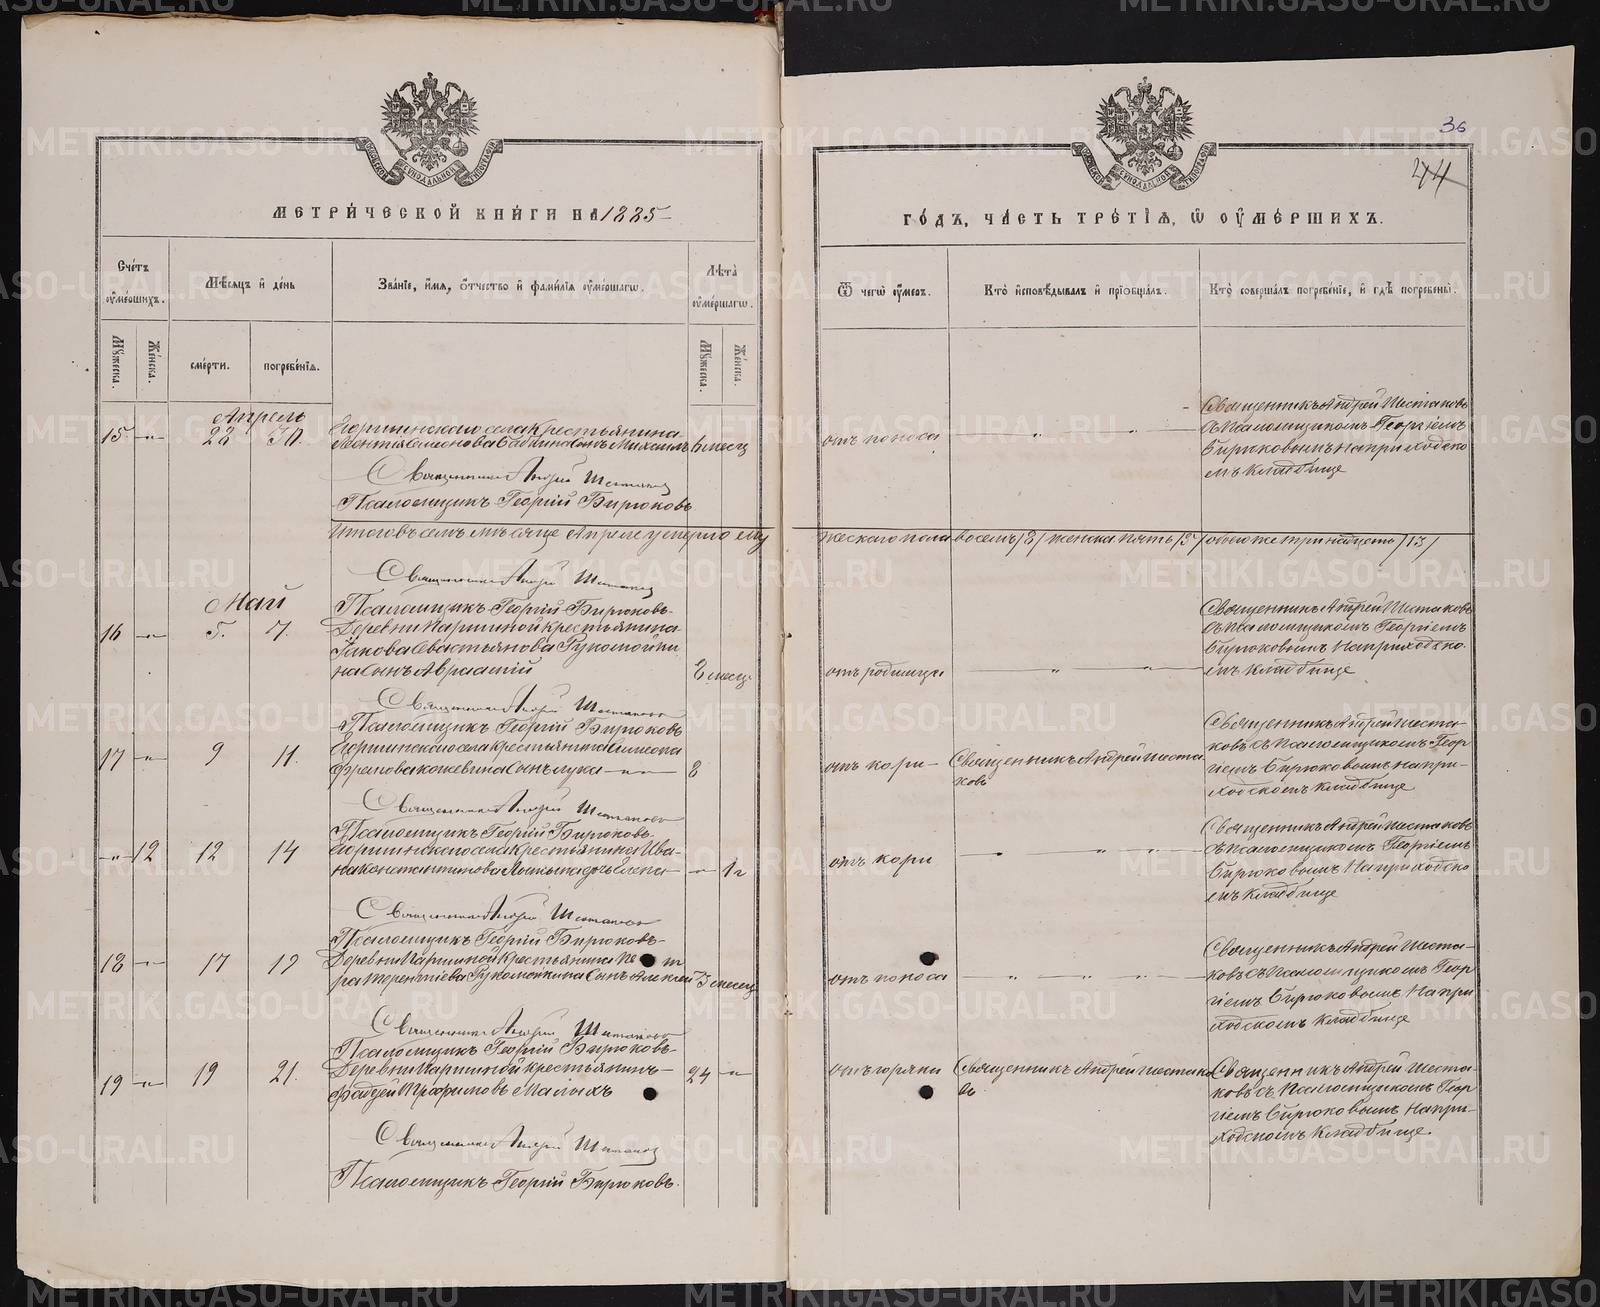 36
44
МЕТРИ́ЧЕСКОЙ КНИ́ГИ НА 1885
ГО́ДЪ, ЧА́СТЬ ТРЕ́ТІѦ, Ѡ ОУ҆МЕ́РШИХЪ.
Сче́тъ оу҆ме́ршихъ.
Мѣ́сѧцъ и҆ де́нь
Зва́нїе, и҆́мѧ, ѻ҆́тчество и҆ фами́лїѧ оу҆ме́ршагѡ.
Лѣ́та оу҆ме́ршагѡ.
Ѿ чегѡ̀ оу҆́меръ.
Кто̀ и҆сповѣ́дывалъ и҆ прїѡбща́лъ.
Кто̀ соверша́лъ погребе́нїе, и҆ гдѣ̀ погребены̀.
Му́жеска.
Же́нска.
сме́рти.
погребе́нїѧ.
Му́жеска.
Же́нска.
Апрель
15 -"- 28 30.
крестьянина
Леонтія Симеонова Сынъ Михаилъ 6 месец
отъ поноса
Священникъ Андрей Шестаковъ
съ Псаломщикомъ Георгіемъ
Бирюковымъ На приходско
мъ Кладбище
Священникъ Андрей Шестаковъ
Псаломщикъ Георгій Бирюковъ
Итого въ семъ мѣсяце Апреле умерло му
жескаго пола восемь /8/ женска пять /5/ обоюже тринадцать /13/
Священникъ Андрей Шестаковъ
Май
Псаломщикъ Георгій Бирюковъ.
16 -"- 5. 7.
Деревни Паршиной крестьянина
Іакова Севастьянова Рукомойки
на Сынъ Авраамій
8 месец.
отъ родимца
Священникъ Андрей Шестаковъ
съ Псаломщикомъ Георгіемъ
Бирюковымъ На приходско.
мъ Кладбище
Священникъ Андрей Шестаковъ
Псаломщикъ Георгій Бирюковъ
17 -"- 9 11.
села крестьянина Симеона
Сынъ Лука 8
отъ кори
Священникъ Андрей Шеста
ковъ
Священникъ Андрей Шеста-
ковъ съ Псаломщикомъ Геор
гіемъ Бирюковымъ На при-
ходскомъ Кладбище
Священникъ Андрей Шестаковъ
Псаломщикъ Георгій Бирюковъ.
-"- 12 12 14
села крестьянина Ива-
на Константинова дочь Елена - 1 г
отъ кори
Священникъ Андрей Шестаковъ
съ Псаломщикомъ Георгіемъ
Бирюковымъ На приходско
мъ Кладбище
Священникъ Андрей Шестаковъ
Псаломщикъ Георгій Бирюковъ-
18 -"- 17 19
Деревни Паршиной Крестьянина Пет
ра Терентіева Рукомойкина Сынъ Алексей 3 месец
отъ поноса
Священникъ Андрей Шеста-
ковъ съ Псаломщикомъ Геор
гіемъ Бирюковымъ На при
ходскомъ Кладбище
Священникъ Андрей Шестаковъ
Псаломщикъ Георгій Бирюковъ-
19 -"- 19 21.
Деревни Паршиной крестьянинъ
Фаддей Трофимовъ Малыхъ
24 -"-
отъ горячки
Священникъ Андрей Шестако
въ
Священникъ Андрей Шеста-
ковъ съ Псаломщикомъ Геор
гіемъ Бирюковымъ На при-
ходскомъ Кладбище
Священникъ Андрей Шестаковъ
Псаломщикъ Георгій Бирюковъ.
METRIKI.GASO-URAL.RU